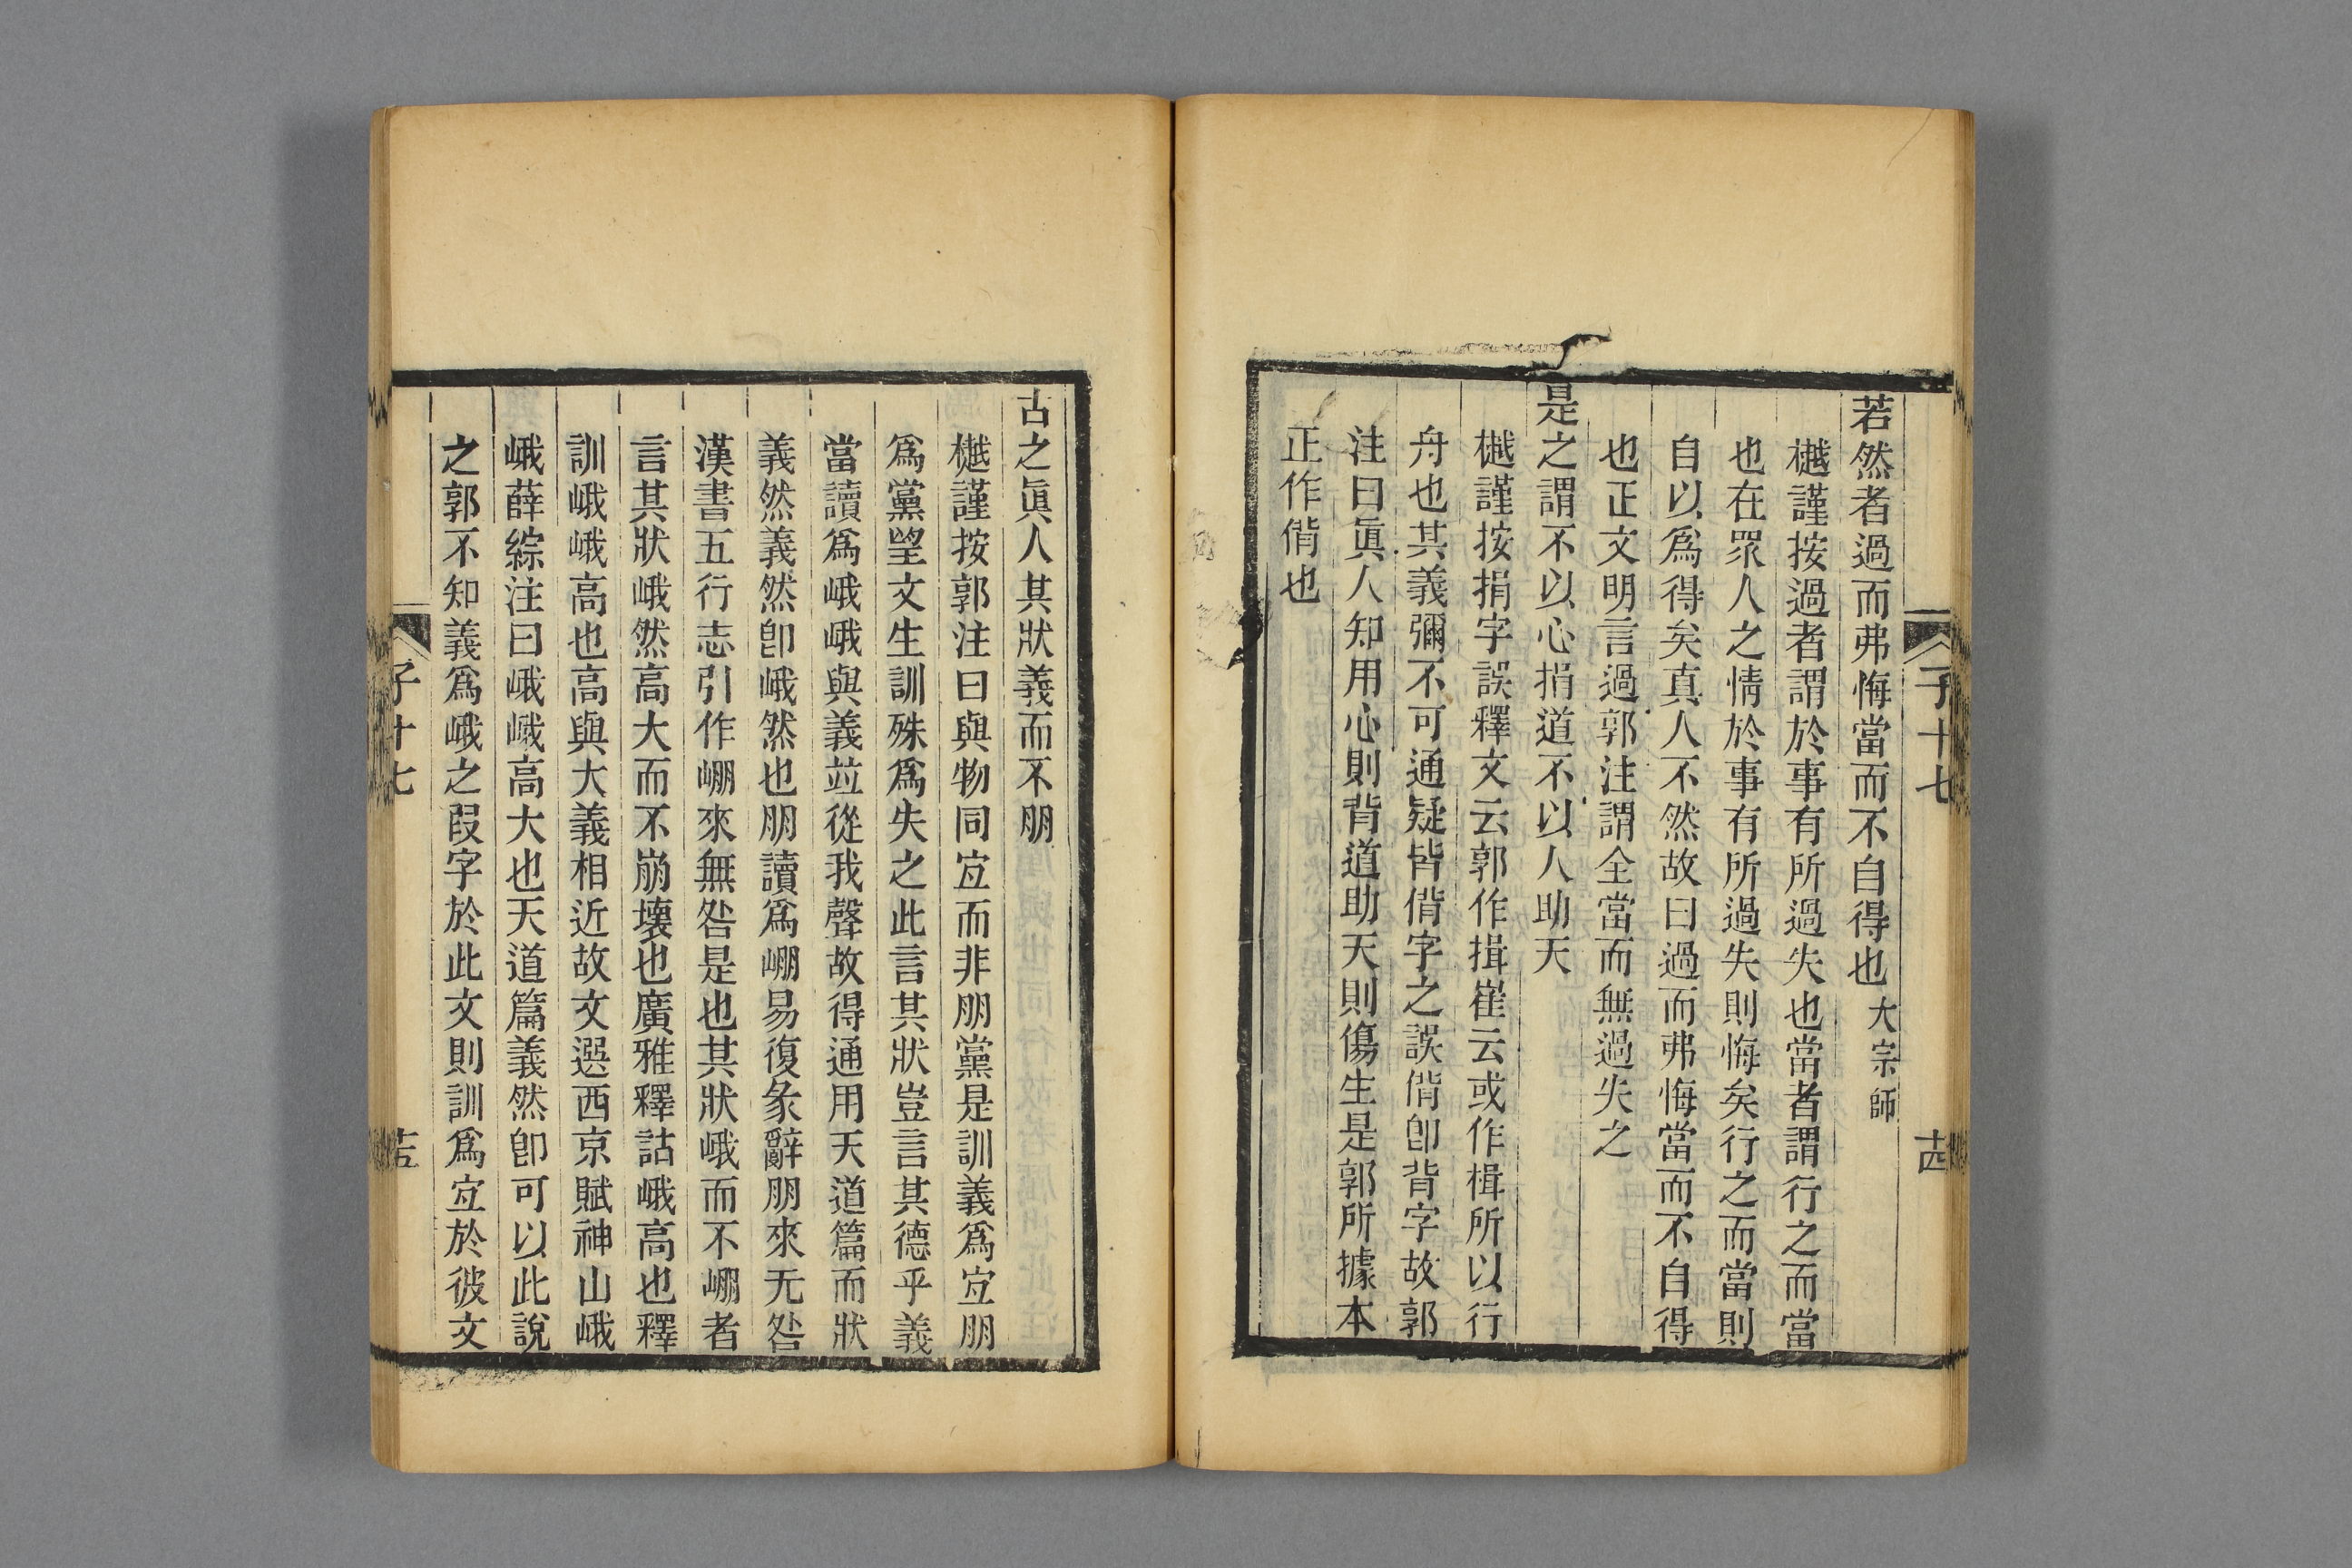 子十七
十四
若然者過而弗悔當而不自得也大宗師
樾謹按過者謂於事有所過失也當者謂行之而當
也在眾人之情於事有所過失則悔矣行之而當則
自以爲得矣真人不然故曰過而弗悔當而不自得
也正文明言過郭注謂全當而無過失之
是之謂不以心捐道不以人助天
樾謹按捐字誤釋文云郭作揖崔云或作楫所以行
舟也其義彌不可通疑皆偝字之誤偝卽背字故郭
注曰眞人知用心則背道助天則傷生是郭所據本
正作偝也
古之眞人其狀義而不朋
樾謹按郭注曰與物同宐而非朋黨是訓義爲宐朋
爲黨望文生訓殊爲失之此言其狀豈言其德乎義
當讀爲峨峨與義竝從我聲故得通用天道篇而狀
義然義然卽峨然也朋讀爲崩易復彖辭朋來无咎
漢書五行志引作崩來無咎是也其狀峨而不崩者
言其狀峨然高大而不崩壞也廣雅釋詁峨高也釋
訓峨峨高也高與大義相近故文選西京賦神山峨
峨薛綜注曰峨峨高大也天道篇義然卽可以此說
之郭不知義爲峨之叚字於此文則訓爲宐於彼文
子十七